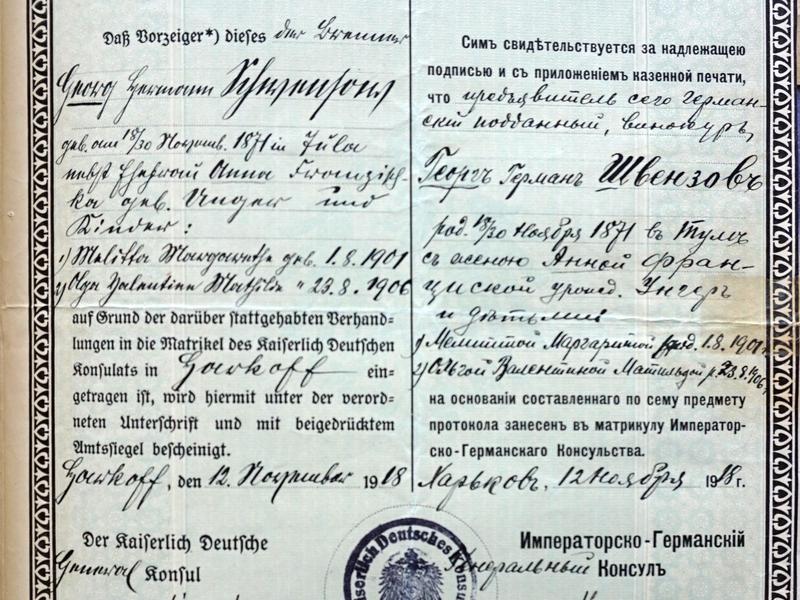 Daß Vorzeiger*) dieses der Brenner
Georg Hermann Schwensow
geb. am 18/30 Novemb. 1871 in Tula
nebst Ehefrau Anna Franzisk-
ka geb. Unger und
Kinder:
1) Melitta Margarethe geb. 1.8.1901
2) Olga Valentine Mathilde " 23.8.1906
auf Grund der darüber stattgehabten Verhand-
lungen in die Matrikel des Kaiserlich Deutschen
Konsulats in Harkoff ein-
getragen ist, wird hiermit unter der verord-
neten Unterschrift und mit beigedrücktem
Amtssiegel bescheinigt.
Harkoff, den 12. November 1918
Der Kaiserlich Deutsche
General Konsul
Симъ свидѣтельствуется за надлежащею
подписью и съ приложеніемъ казенной печати,
что предъявитель сего Герман-
скій подданный, винокуръ,
Георгъ Германъ Швензовъ
род. 18/30 Ноября 1871 въ Тулѣ
съ женою Анной Фран-
циской урожд. Унгеръ
и дѣтьми
1) Мелиттой Маргаритой род. 1.8.1901 г.
2) Ольгой Валентиной Матильдой р. 23.8.1906 г.
на основаніи составленнаго по сему предмету
протокола занесенъ въ матрикулу Император-
ско-Германскаго Консульства.
Харьковъ, 12 Ноября 1918 г.
Императорско-Германскій
Генеральный Консулъ
Kaiserlich Deutsches